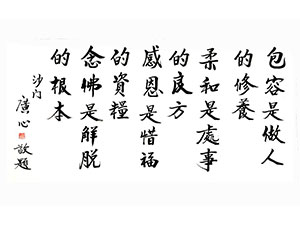 包容是做人
的修養
柔和是處事
的良方
感恩是惜福
的資糧
念佛是解脫
的根本
沙門
廣心
敬題